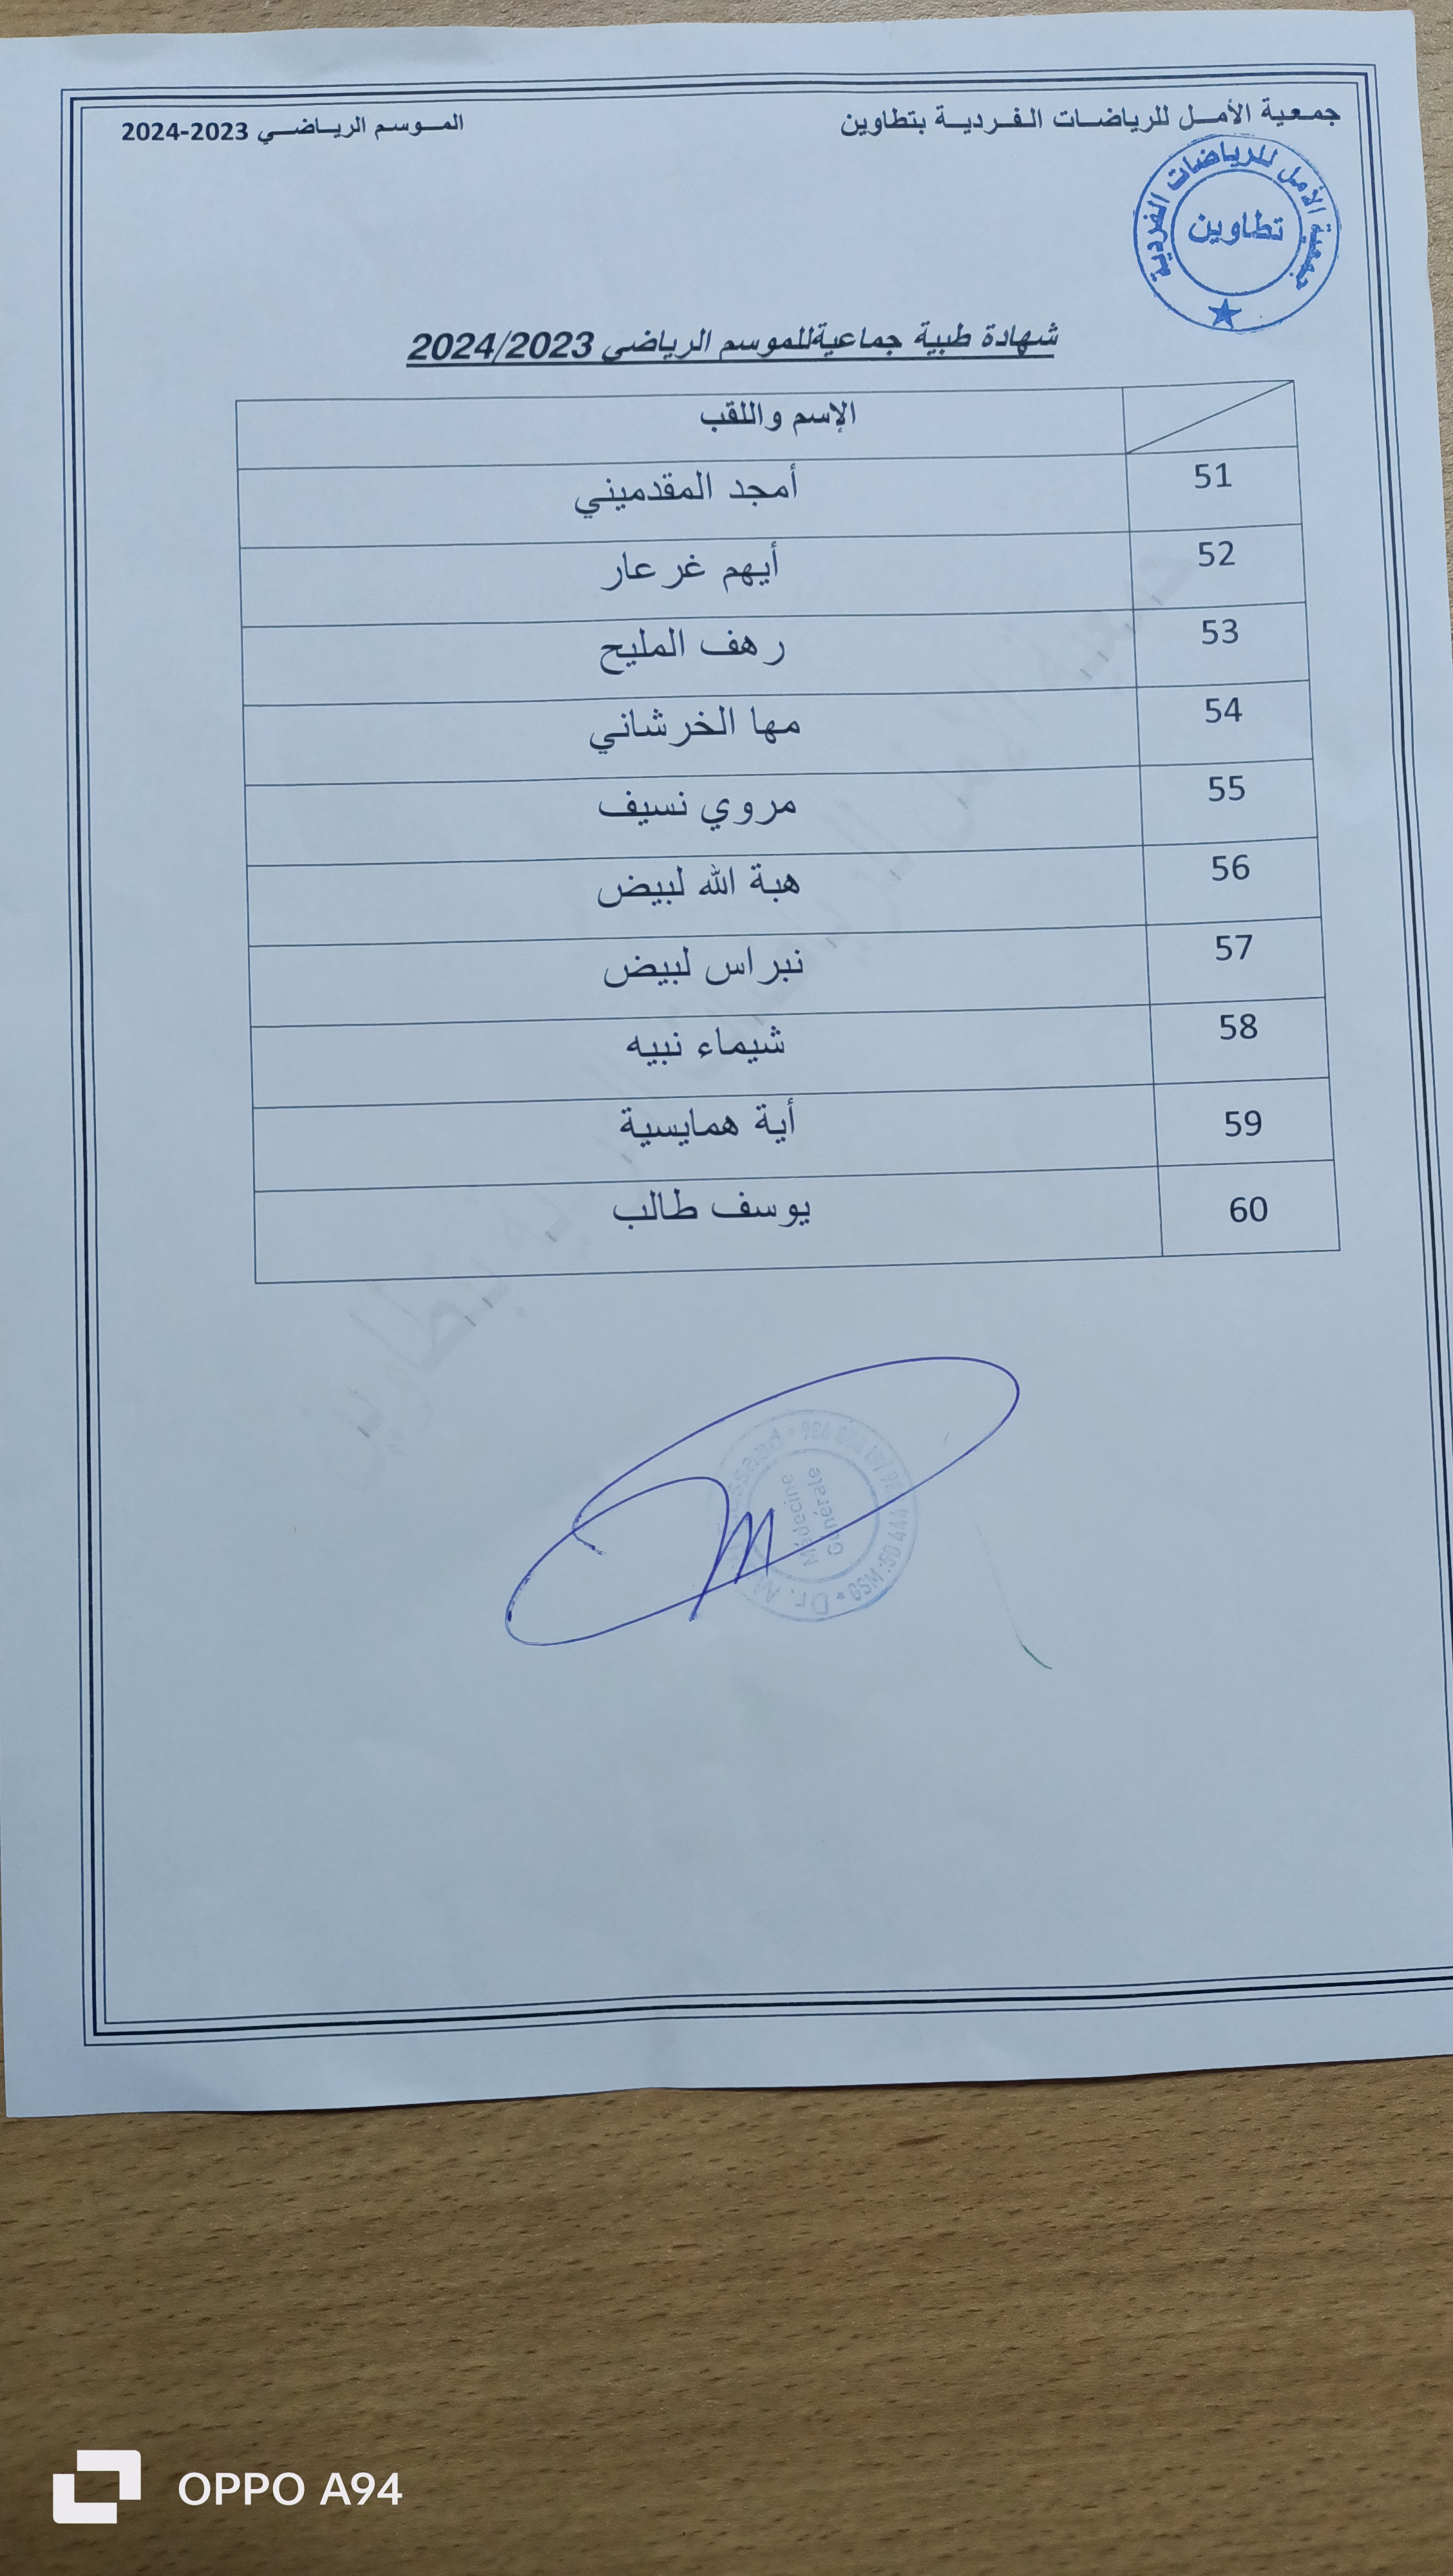 جمعية الأمل للرياضات الفردية بتطاوين
الموسم الرياضي 2023-2024
جمعية الأمل للرياضات الفردية
تطاوين
شهادة طبية جماعيةللموسم الرياضي 2024/2023
الإسم واللقب
51 أمجد المقدميني
52 أيهم غرعار
53 رهف المليح
54 مها الخرشاني
55 مروي نسيف
56 هبة الله لبيض
57 نبراس لبيض
58 شيماء نبيه
59 أية همايسية
60 يوسف طالب
جمعية الأمل للرياضات الفردية بتطاوين
Médecine
Générale
Dr.
GSM:50 444
OPPO A94